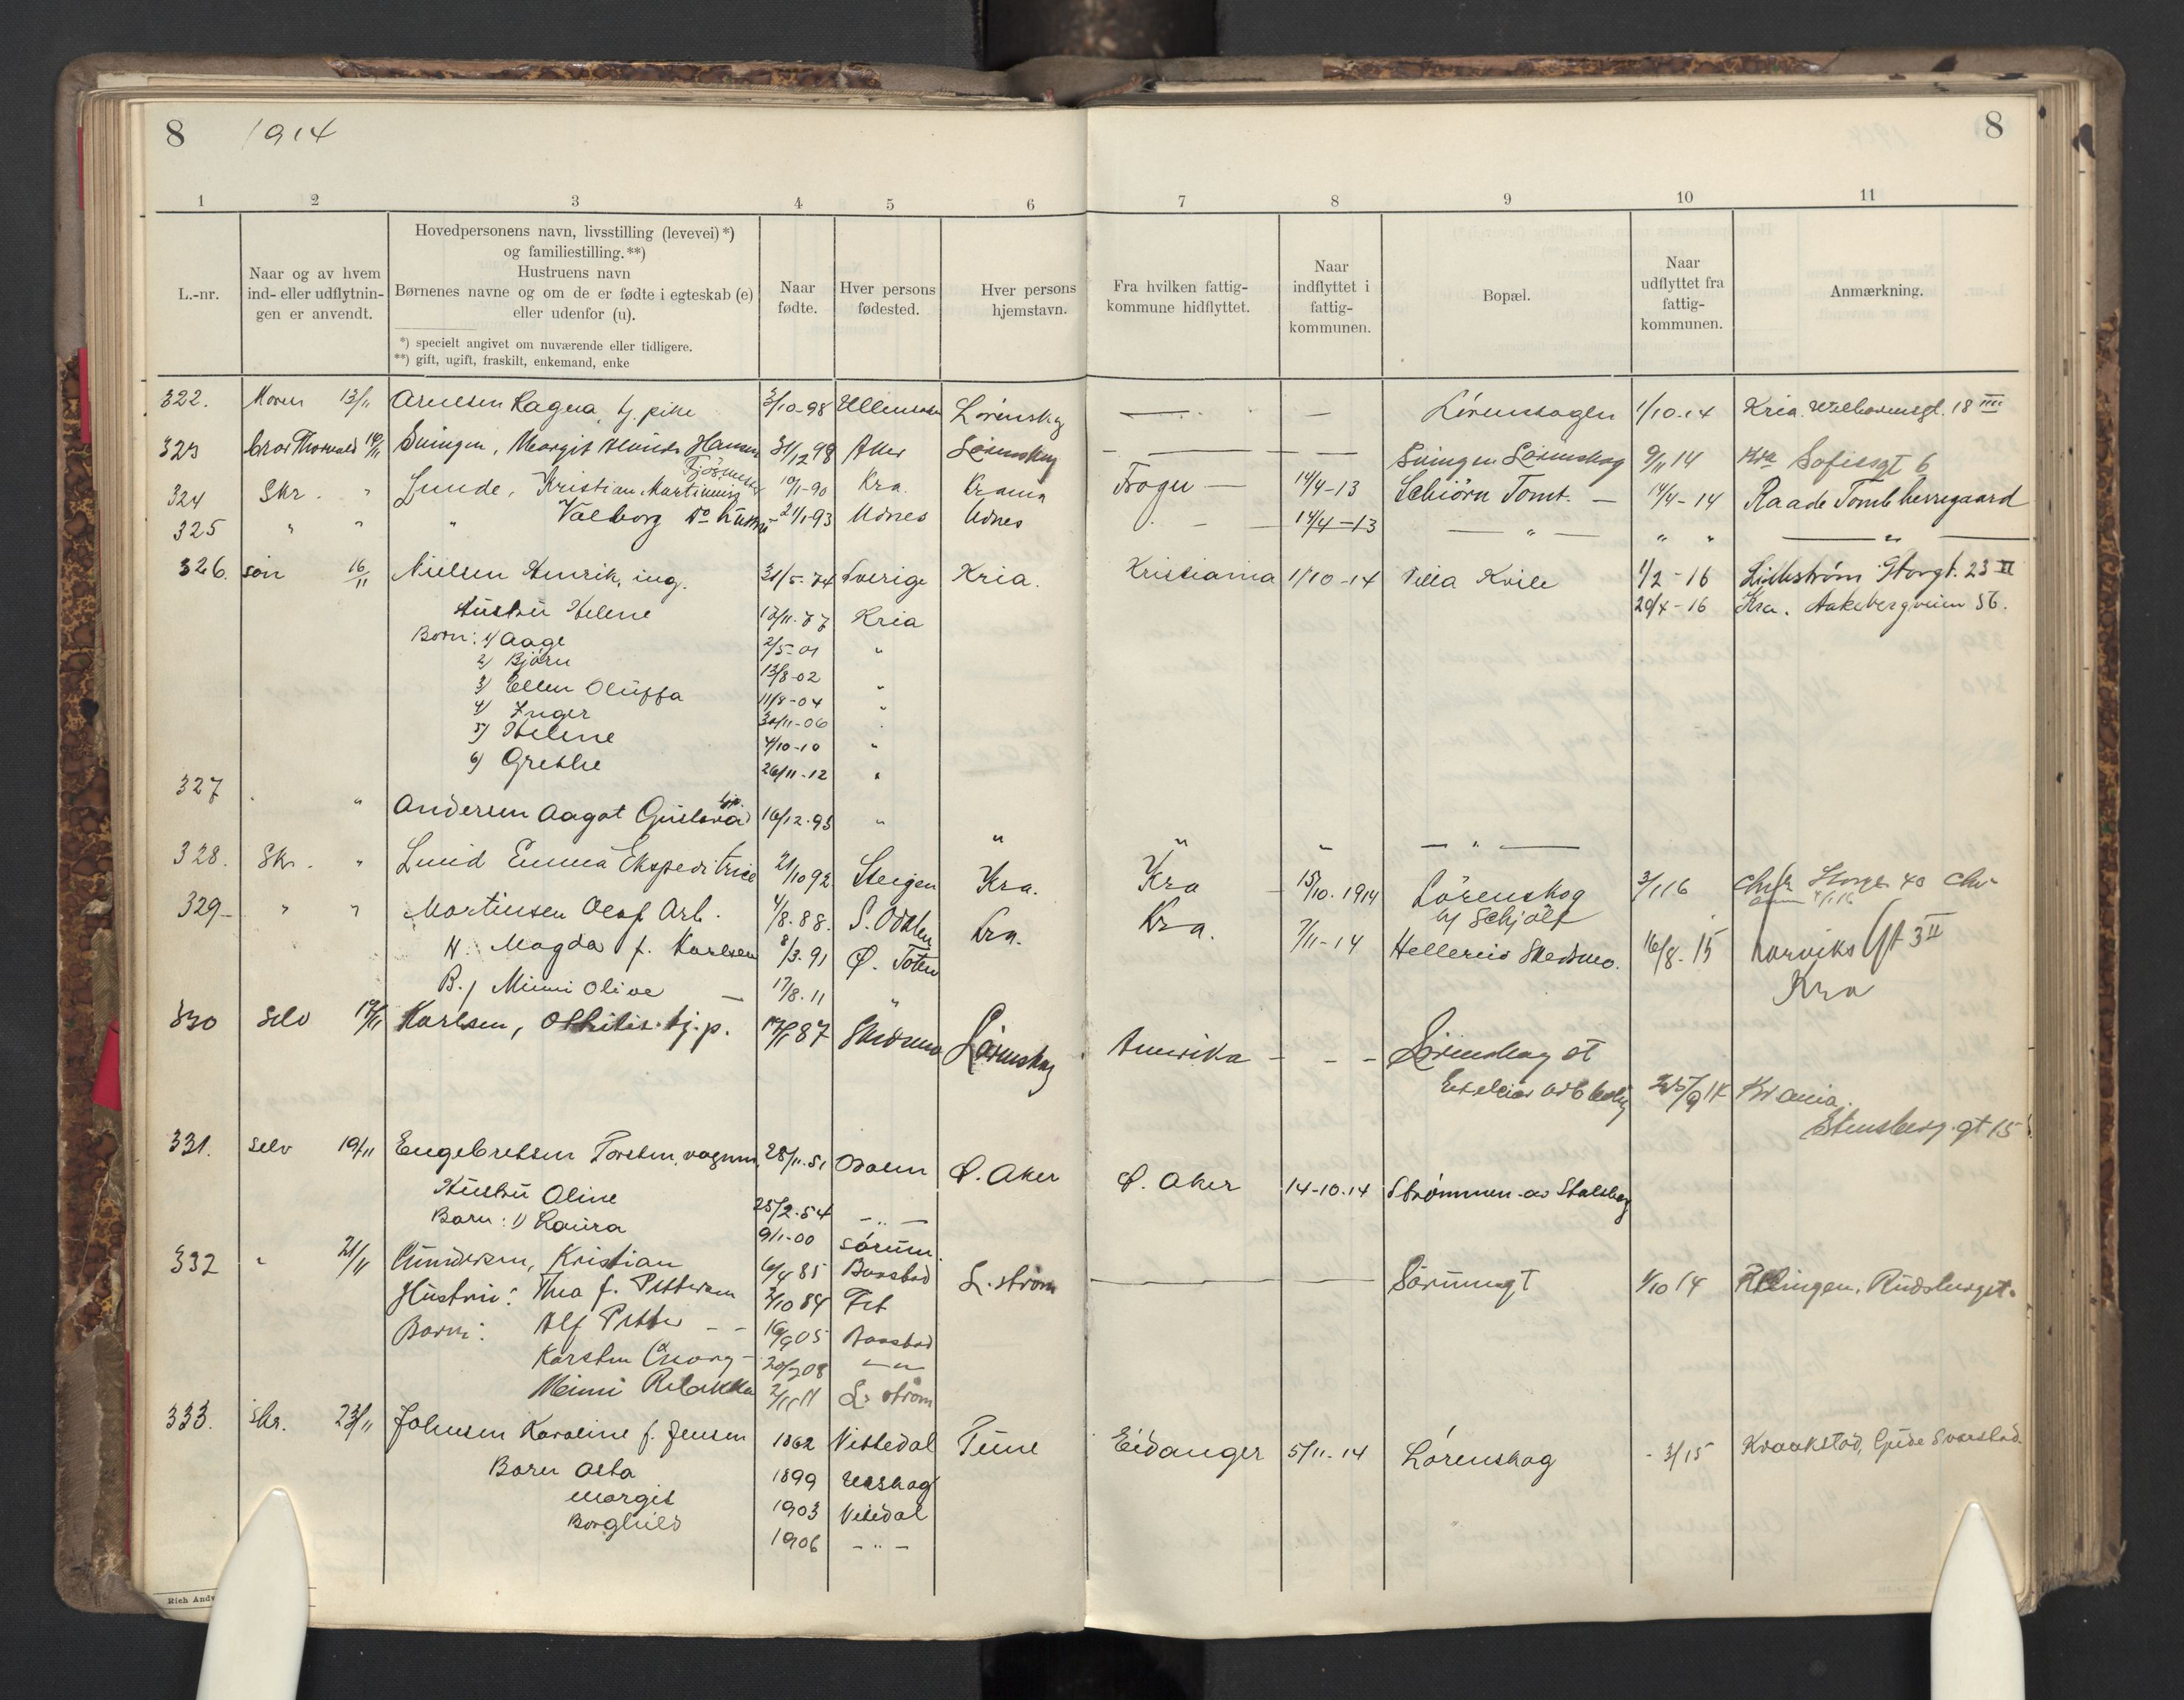 8 1914 8
1 2 3 4 5 6 7 8 9 10 11
L.-nr.
Naar og av hvem ind- eller udflytnin-gen er anvendt.
Hovedpersonens navn, livsstilling (levevei)*) og familiestilling.**)
Hustruens navn
Børnenes navne og om de er fødte i egteskab (e) eller udenfor (u).
*) specielt angivet om nuværende eller tidligere.
**) gift, ugift, fraskilt, enkemand, enke
Naar fødte.
Hver persons fødested.
Hver persons hjemstavn.
Fra hvilken fattig-kommune hidflyttet.
Naar indflyttet i fattig-kommunen.
Bopæl.
Naar udflyttet fra fattig-kommunen.
Anmærkning.
322. Moren 13/11 Arnesen Ragna, tj. pike 3/10-98 Lørenskog — — 1/10-14 Kria. 18 IIII
323 Thorvald Svingen, Margit Hansen 31/12 98 Aker Lørenskog — — Svingen Lørenskog 9/11 14 Kra Sofiesgt 6
324 Skr. " Lunde, Kristian Martinius 10/1-90 Kra. Krania Frogn — 14/4-13 Tomt. — 14/4-14 Raade Tomb herregaard
325 " " " Valborg Do hustru 21/1-93 Udnes Udnes 14/4-13 — " — " " — " —
326. søn 16/11 Nielsen Henrik, ing. 31/5-74 Sverige Kria. Kristiania 1/10-14 Villa Kvile 1/2-16 Lillestrøm Storgt. 23 II
Hustru Helene 13/11-77 Kria 29/4-16 Kra. Aakebergveien 56.
Børn: 1) Aage 2/5-01 "
2) Bjørn 13/8-02
3) Ellen Oluffa 11/8-04 "
4) Inger 30/11-06 "
5) Helene 4/10-10 "
6) Grethe 26/11-12 "
327 " " Andersen Aagot Gustava tjp. 16/12-93 " " " " — " —
328. Skr. " Lund Emma Ekspeditrice 21/10 92 Steigen Kra. Kra — 15/10.1914 Lørenskog 3/1 16
329 " " Martinsen Olaf Arb. 4/8.88. S. Odalen Kra. Kra. 7/11-14 Skedsmo. 16/8-15 Narviks gt 3 II
H. Magda f. Karlsen 8/3.91 Ø. Toten Kra
B. Mimi Olive — 17/8.11 "
330 Selv 17/11 Karlsen, tj.p. 87 Skedsmo Lørenskog Amerika — — — Lørenskog st
25/9 14 Krania.
Stensberg.gt 15
331. selv 19/11 Engebretsen Torsten, vognm. 28/11.51 Odalen Ø. Aker Ø. Aker 14-10.14 Strømmen
Hustru Oline 25/2.54 — " —
Barn: 1) Laura 9/1-00 Sørum.
332 " 21/11 Gundersen, Kristian 6/4 85 Baastad L. strøm — — Sørumsgt 1/10 14 Rælingen.
Hustru: Thea f. Pettersen 2/10 84 Fet
Børn: Alf Petter — 16/9 05 Baastad
Karsten Georg — 20/7 08 — " —
Mimi Rebekka 2/11 11 L. strøm
333. Skr. 23/11 Johnsen Karoline f. Jensen 1862 Nittedal Tune Eidanger 5/11-14 Lørenskog - 3/15 Kraakstad,
Børn Asta 1899 Urskog
Margit 1903 Nitedal
Borghild 1906 — " —